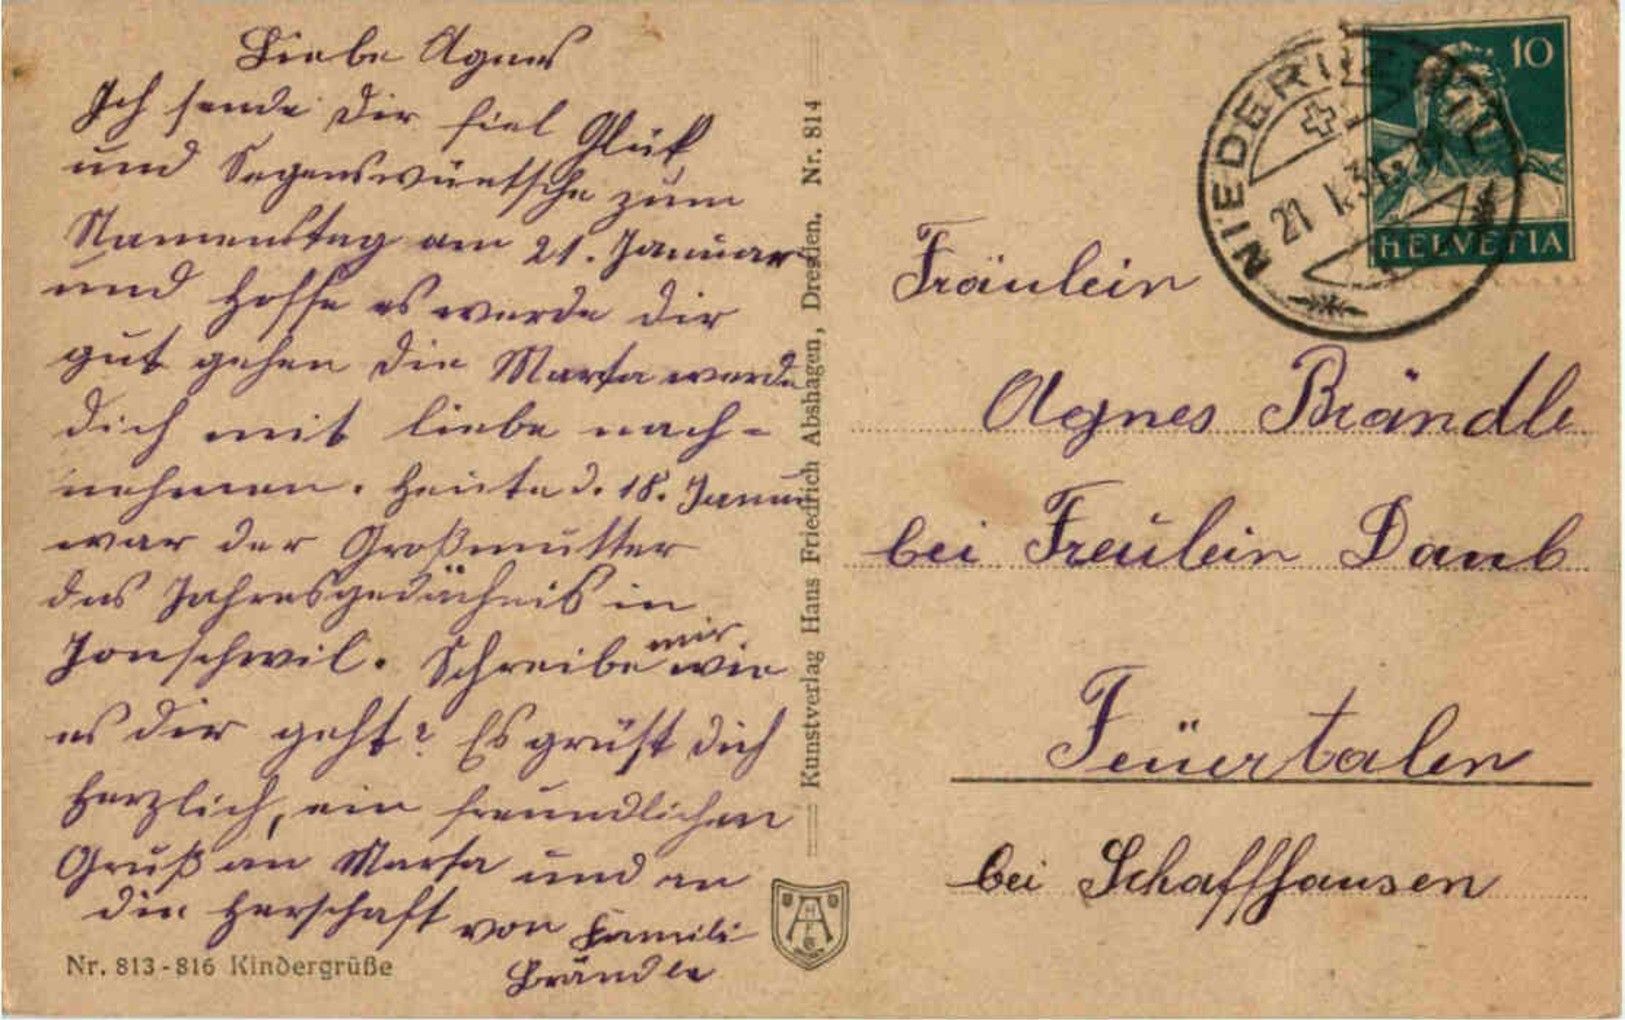 Liebe Agnes
Ich sende Dir fiel Glük
und Segenswüntsche zum
Namenstag am 21. Januar
und hoffe es werde dir
gut gehen die Martha werde
dich mit liebe nach=
nehmen. Heute d. 18. Januar
war der Großmutter
das Jahresgedächniß in
Jonschwil. Schreibe mir wie
es dir geht? Es grüßt dich
herzlich, ein freundlichen
Gruß an Martha und an
die Herschaft von Famili
Brändle
Nr. 813-816 Kindergrüße
Kunstverlag Hans Friedrich Abshagen, Dresden. Nr. 814
10
HELVETIA
Fräulein
Agnes Brändle
bei Freulein Daub
Feüertalen
bei Schaffhausen